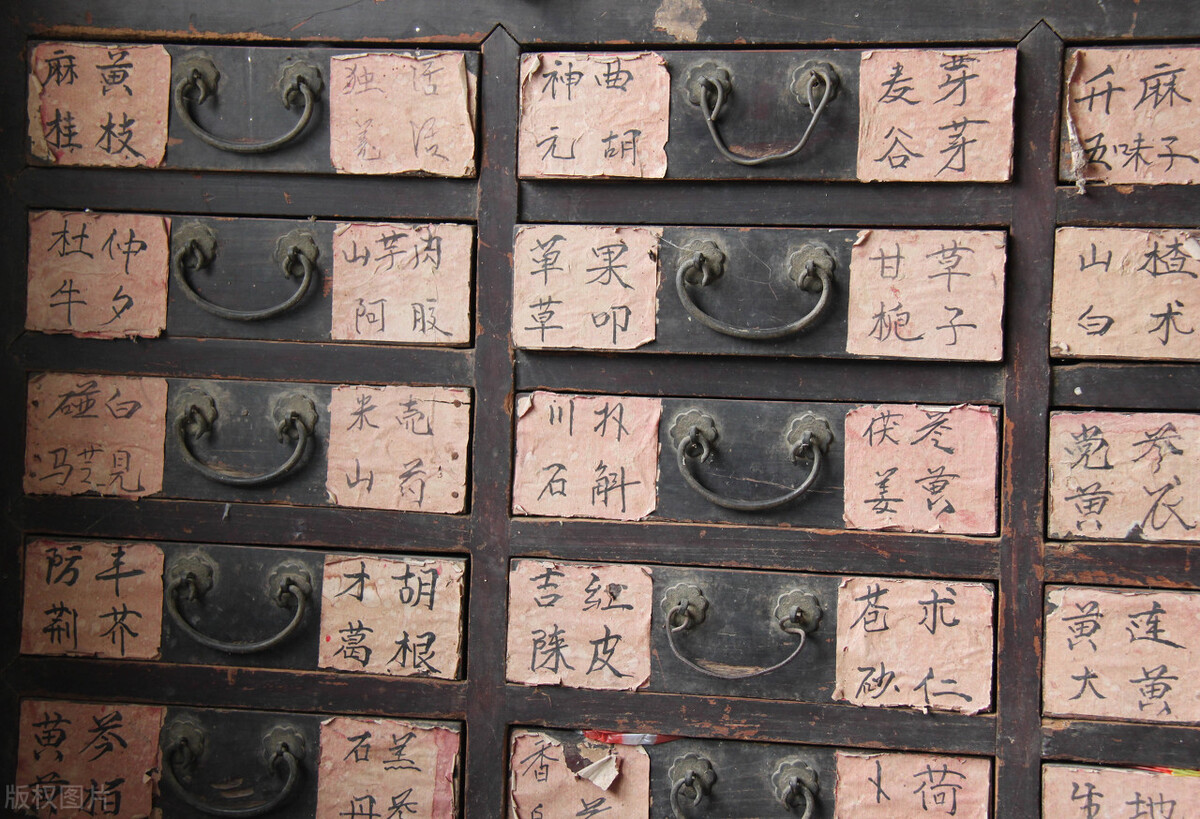 麻黄
桂枝
独活
羌活
神曲
元胡
麦芽
谷芽
升麻
五味子
杜仲
牛夕
山芋肉
阿胶
草果
草叩
甘草
栀子
山楂
白术
碰白
马芸见
米壳
山芍
川朴
石斛
茯苓
姜黄
党参
黄
防丰
荆芥
才胡
葛根
吉红
陈皮
苍术
砂仁
黄莲
大黄
黄芩
石羔
丹参
香
卜荷
生地
版权图片